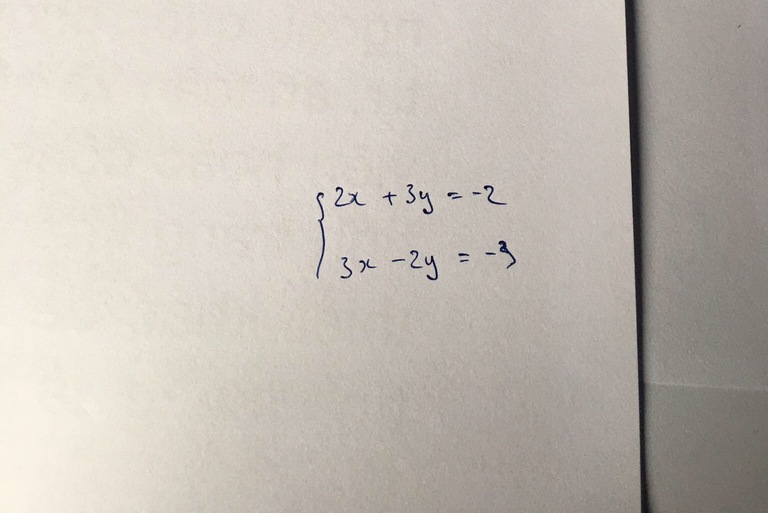 2x + 3y = -2
3x - 2y = -3